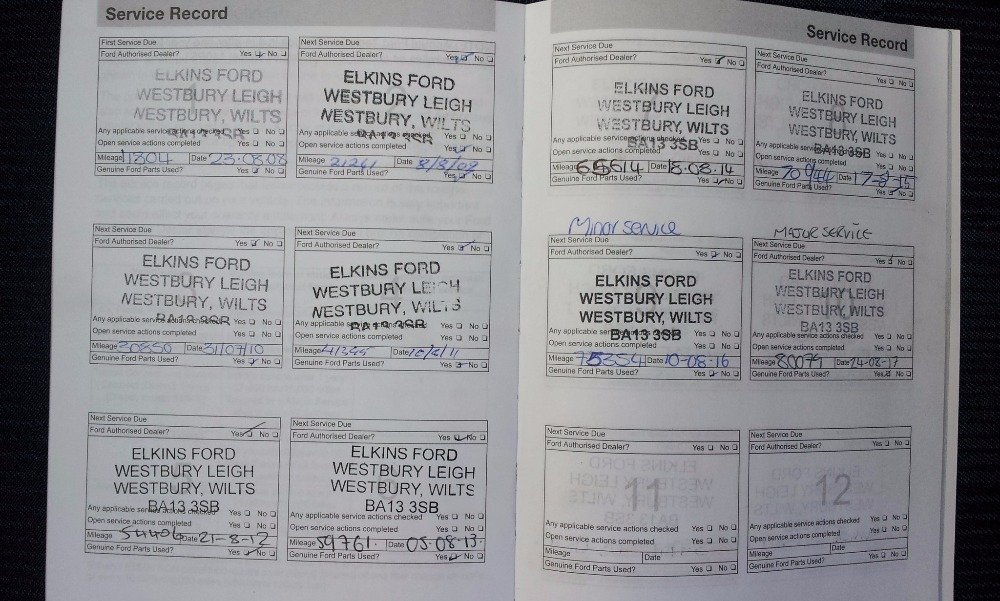 Service Record
First Service Due
Ford Authorised Dealer? Yes No
ELKINS FORD
WESTBURY LEIGH
WESTBURY, WILTS
BA13 3SB
Any applicable service Yes No
Open service actions completed Yes No
Mileage 11804 Date 23.08.08
Genuine Ford Parts Used? Yes No
Next Service Due
Ford Authorised Dealer? Yes No
ELKINS FORD
WESTBURY LEIGH
WESTBURY, WILTS
BA13 3SB
Any applicable Yes No
Open service actions completed Yes No
Mileage 21261 Date
Genuine Ford Parts Used? Yes No
Next Service Due
Ford Authorised Dealer? Yes No
ELKINS FORD
WESTBURY LEIGH
WESTBURY, WILTS
BA13 3SB
Any applicable Yes No
Open service actions completed Yes No
Mileage 30850 Date 31/07/10
Genuine Ford Parts Used? Yes No
Next Service Due
Ford Authorised Dealer? Yes No
ELKINS FORD
WESTBURY LEIGH
WESTBURY, WILTS
BA13 3SB
Any applicable Yes No
Open service actions completed Yes No
Mileage Date
Genuine Ford Parts Used? Yes No
Next Service Due
Ford Authorised Dealer? Yes No
ELKINS FORD
WESTBURY LEIGH
WESTBURY, WILTS
BA13 3SB
Any applicable service actions checked Yes No
Open service actions completed Yes No
Mileage 54406 Date 21-8-12
Genuine Ford Parts Used? Yes No
Next Service Due
Ford Authorised Dealer? Yes No
ELKINS FORD
WESTBURY LEIGH
WESTBURY, WILTS
BA13 3SB
Any applicable service actions checked Yes No
Open service actions completed Yes No
Mileage 59761 Date 05-08-13
Genuine Ford Parts Used? Yes No
Service Record
Next Service Due
Ford Authorised Dealer? Yes No
ELKINS FORD
WESTBURY LEIGH
WESTBURY, WILTS
BA13 3SB
Any applicable service actions checked Yes No
Open service actions completed Yes No
Mileage 65614 Date 18.08.14
Genuine Ford Parts Used? Yes No
Next Service Due
Ford Authorised Dealer? Yes No
ELKINS FORD
WESTBURY LEIGH
WESTBURY, WILTS
BA13 3SB
Any applicable Yes No
Open service actions completed Yes No
Mileage Date 17-8-15
Genuine Ford Parts Used? Yes No
Minor Service
Next Service Due
Ford Authorised Dealer? Yes No
ELKINS FORD
WESTBURY LEIGH
WESTBURY, WILTS
BA13 3SB
Any applicable service actions checked Yes No
Open service actions completed Yes No
Mileage 75354 Date 10-08-16
Genuine Ford Parts Used? Yes No
MAJOR SERVICE
Next Service Due
Ford Authorised Dealer? Yes No
ELKINS FORD
WESTBURY LEIGH
WESTBURY, WILTS
BA13 3SB
Any applicable service actions checked Yes No
Open service actions completed Yes No
Mileage 80079 Date 24-08-17
Genuine Ford Parts Used? Yes No
Next Service Due
Ford Authorised Dealer? Yes No
11
Any applicable service actions checked Yes No
Open service actions completed Yes No
Mileage Date
Genuine Ford Parts Used? Yes No
Next Service Due
Ford Authorised Dealer? Yes No
12
Any applicable service actions checked Yes No
Open service actions completed Yes No
Mileage Date
Genuine Ford Parts Used? Yes No